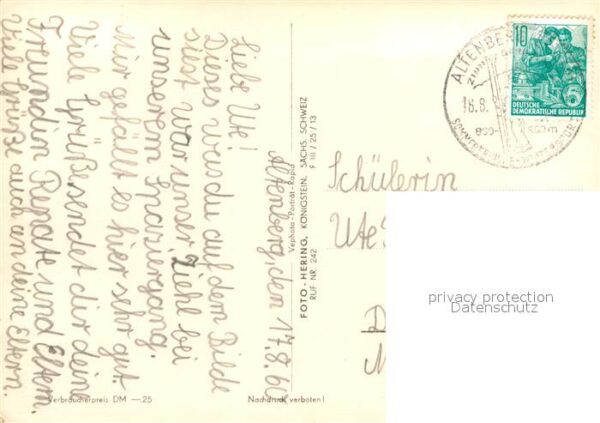 Altenberg, den 17.8.60
Liebe Ute!
Dieses was du auf dem Bilde
siest war unser Ziehl bei
unserem Spaziergang.
Mir gefällt es hier sehr gut.
Viele Grüße sendet dir deine
Freundin Renate und Eltern.
Viele Grüße auch an deine Eltern.
Verbraucherpreis DM —.25
Nachdruck verboten!
Vephota-Porträt-Rapid
FOTO-HERING, KÖNIGSTEIN, SÄCHS. SCHWEIZ
RUF NR. 242
F III / 25 / 13
Schülerin
Ute
ALTENBE
16.8.
800-
10
DEUTSCHE
DEMOKRATISCHE REPUBLIK
privacy protection
Datenschutz